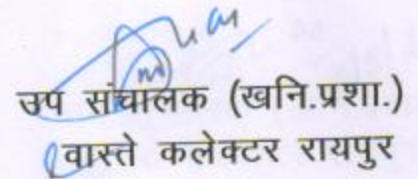 उप संचालक (खनि.प्रशा.)
वास्ते कलेक्टर रायपुर